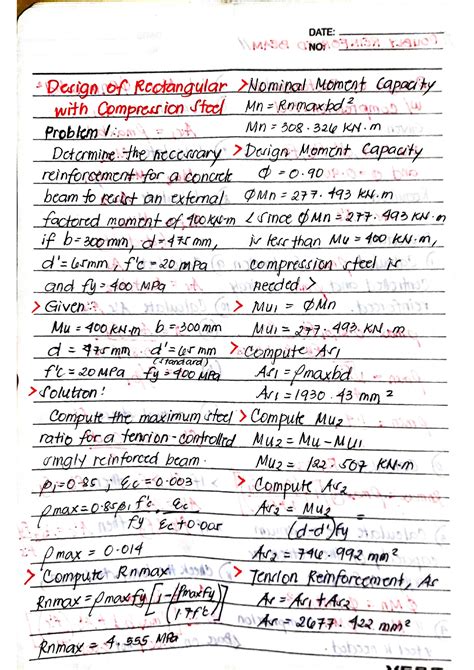 DATE:
NO:
Design of Rectangular
with Compression Steel
Problem 1:
Determine the necessary
reinforcement for a concrete
beam to resist an external
factored moment of 400 KN-m
if b=300mm, d=475mm,
d'=65mm, f'c=20 MPa
and fy=400 MPa
> Given:
Mu=400KN.m b=300mm
d=475mm d'=65mm
(standard)
f'c=20MPa fy=400MPa
> Solution:
Compute the maximum steel
ratio for a tension-controlled
singly reinforced beam.
β1=0.85; Ec=0.003
ρmax=0.85β1 f'c/fy Ec/Ec+0.005
ρmax = 0.014
> Compute Rnmax
Rnmax=ρmaxfy[1-ρmaxfy/1.7f'c]
Rnmax = 4.555 MPa
> Nominal Moment Capacity
Mn=Rnmaxbd²
Mn=308.326 KN.m
> Design Moment Capacity
Φ=0.90
ΦMn=277.493 KN.m
<since ΦMn=277.493 KN.m
is less than Mu=400 KN.m,
compression steel is
needed>
> Mu1=ΦMn
Mu1=277.493 KN.m
> Compute As1
As1=ρmaxbd
As1=1930.43 mm²
> Compute Mu2
Mu2=Mu-Mu1
Mu2=122.507 KN.m
> Compute As2
As2=Mu2/(d-d')fy
As2=746.992 mm²
> Tension Reinforcement, As
As=As1+As2
As=2677.422 mm²